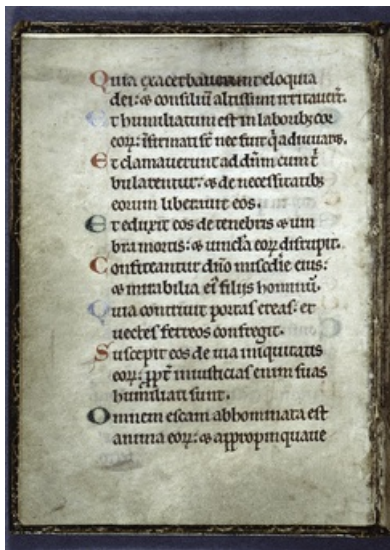 Quia exacerbaverunt eloquia
dei: ⁊ consiliū altissimi irritaverūt.
Et humiliatum est in laborib; cor
eoꝝ: īfirmati sūt nec fuit q̄ adiuvaret.
Et clamaverunt ad dñm cum t̄
bularentur: ⁊ de necessitatib;
eorum liberavit eos.
Et eduxit eos de tenebris ⁊ um
bra mortis: ⁊ vincla eoꝝ disrupit.
Confiteantur dño misc̄die eius:
⁊ mirabilia ei᷒ filijs hominū.
Quia contrivit portas ereas: et
vectes ferreos confregit.
Suscepit eos de via iniquitatis
eoꝝ: ꝓpt̄ iniusticias enim suas
humiliati sunt.
Omnem escam abhominata est
anima eoꝝ: ⁊ appropinquave